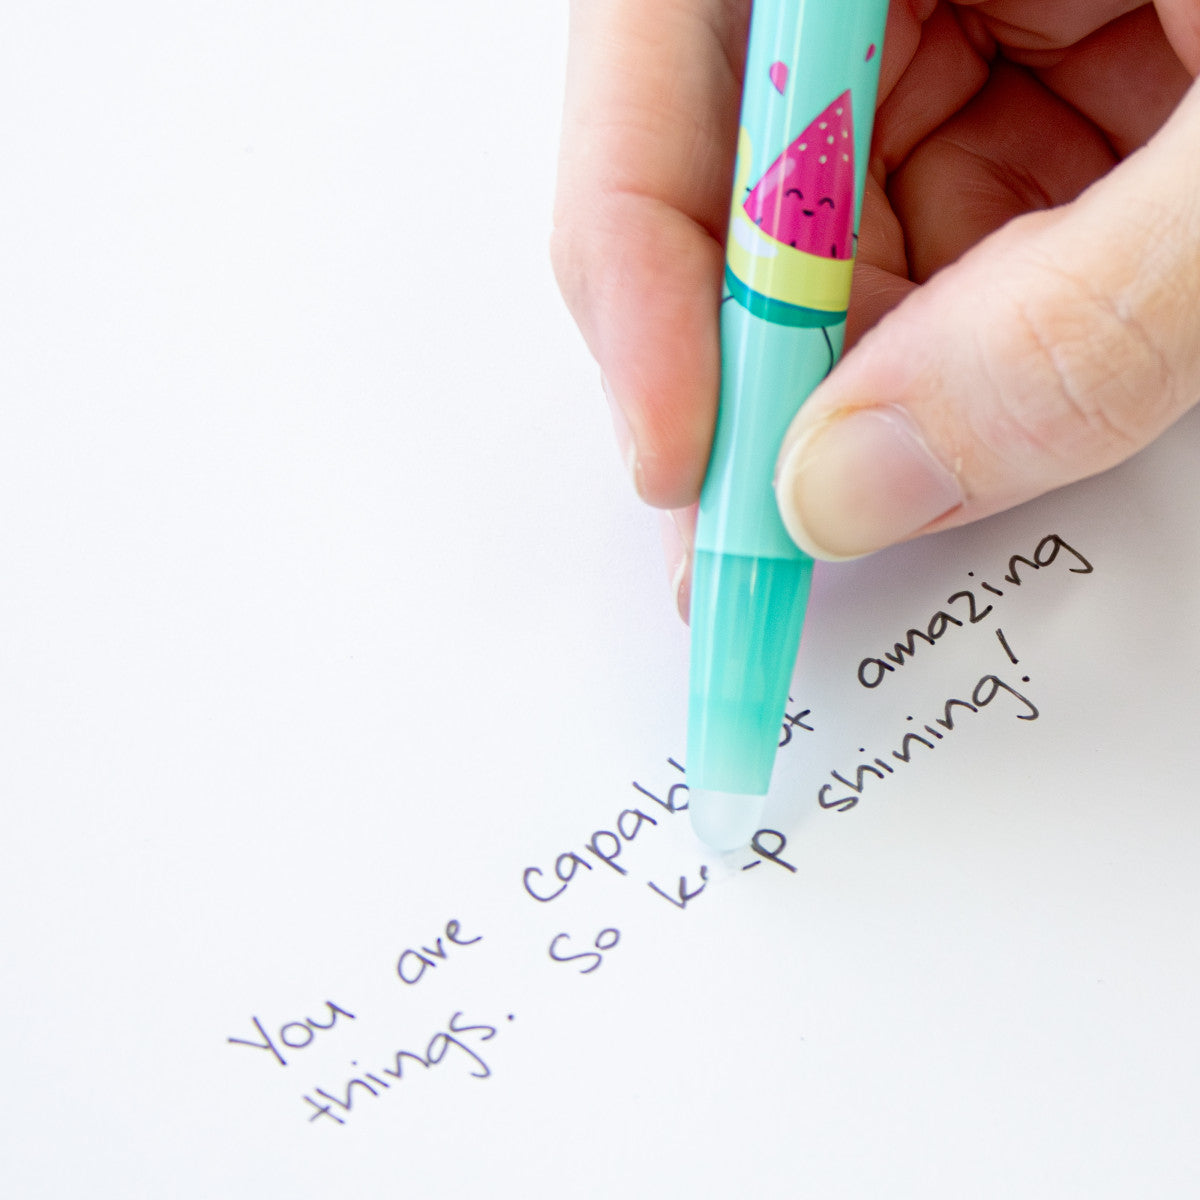 You are capabl of amazing
things. So k p shining!